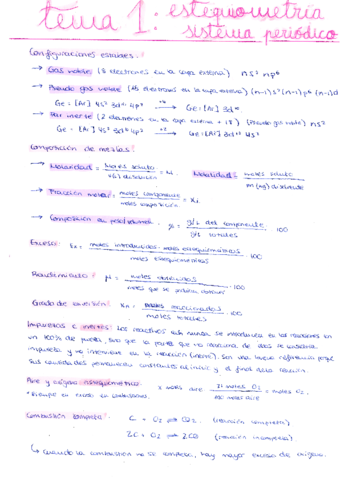 tema 1: estequiometría
sistema periódico
Configuraciones estables:
→ Gas noble (8 electrones en la capa externa) ns² np⁶
→ Pseudo gas noble (18 electrones en la capa externa) (n-1)s² (n-1)p⁶ (n-1)d
Ge = [Ar] 4s² 3d¹⁰ 4p² → Ge = [Ar] 3d¹⁰
→ Par inerte (2 electrones en la capa externa + 18) (Pseudo gas noble) ns²
Ge = [Ar] 4s² 3d¹⁰ 4p² → Ge = [Ar] 3d¹⁰ 4s²
Composición de mezclas:
→ Molaridad = moles soluto / V(l) disolución = M. Molalidad: moles soluto / m (kg) disolvente
→ Fracción molar: moles componente / moles = Xi.
→ Composición en peso/volumen. = g/V del componente / g/V totales · 100
Exceso: = moles introducidos - moles estequiométricos / moles estequiométricos · 100
Rendimiento: = moles obtenidos / moles que se podrían obtener · 100
Grado de conversión: = moles reaccionados / moles totales · 100
Impurezas e inertes: Los reactivos nunca se introducen en las reacciones con
un 100% de pureza, sino que la parte que no reacciona de ellos se considera
impureza y no interviene en la reacción (inerte). Son una buena referencia porque
sus cantidades permanecen constantes al inicio y al final de la reacción.
Aire y oxígeno estequiométrico: x moles aire 21 moles O₂ / 100 moles aire = moles O₂.
* Siempre en exceso en combustiones.
Combustión completa: C + O₂ → CO₂. (reacción completa)
2C + O₂ → 2CO (reacción incompleta).
↳ Cuando la combustión no se completa, hay mayor exceso de oxígeno.